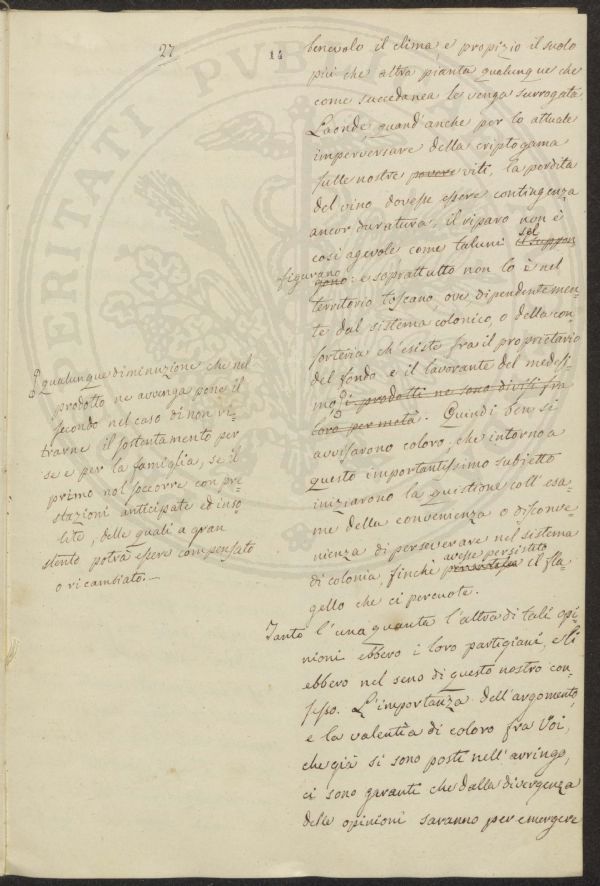 27
14
benevolo il clima, e propizio il suolo
più che altra pianta qualunque che
come succedanea le venga surrogata
Laonde quand'anche per lo attuale
imperversare della criptogama
sulle nostre povere viti, la perdita
del vino dovesse essere contingenza
ancor duratura, il riparo non è
sel
così agevole come taluni il suppon
figurano
gono: e soprattutto non lo è nel
territorio toscano, ove dipendentemen-
te dal sistema colonico, o della con-
sorteria ch'esiste fra il proprietario
del fondo e il lavorante del medesi-
mo i prodotti ne sono divisi fra
loro per metà. Quindi ben si
avvisarono coloro, che intorno a
questo importantissimo subietto
iniziarono la quistione coll'esa-
me della convenienza o disconve-
nienza di perseverare nel sistema
avesse persistito
di colonia, finchè il fla-
gello che ci percuote.
Tanto l'una quanto l'altra di tali opi-
nioni ebbero i loro partigiani, e li
ebbero nel seno di questo nostro con-
sesso. L'importanza dell'argomento,
e la valentìa di coloro fra Voi,
che già si sono posti nell'arringo,
ci sono garanti che dalla divergenza
delle opinioni saranno per emergere
qualunque diminuzione che nel
prodotto ne avvenga pone il
secondo nel caso di non ri-
trarne il sostentamento per
se e per la famiglia, se il
primo nol soccorre con pre-
stazioni anticipate ed inso-
lite, delle quali a gran
stento potrà essere compensato
o ricambiato.—
PERITATI PVBLI